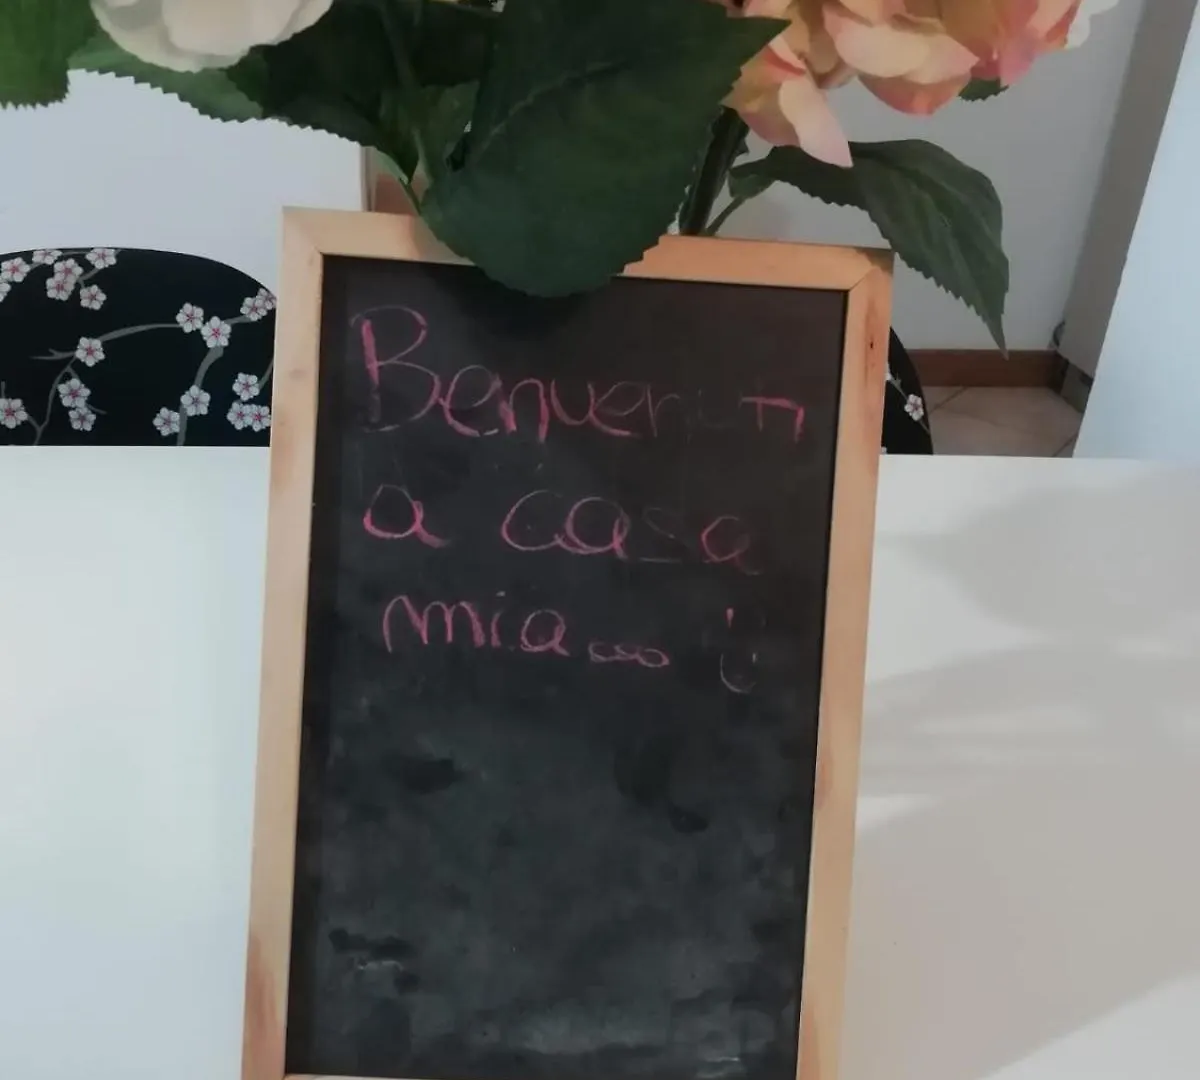 Benvenuti
a casa
mia... :)